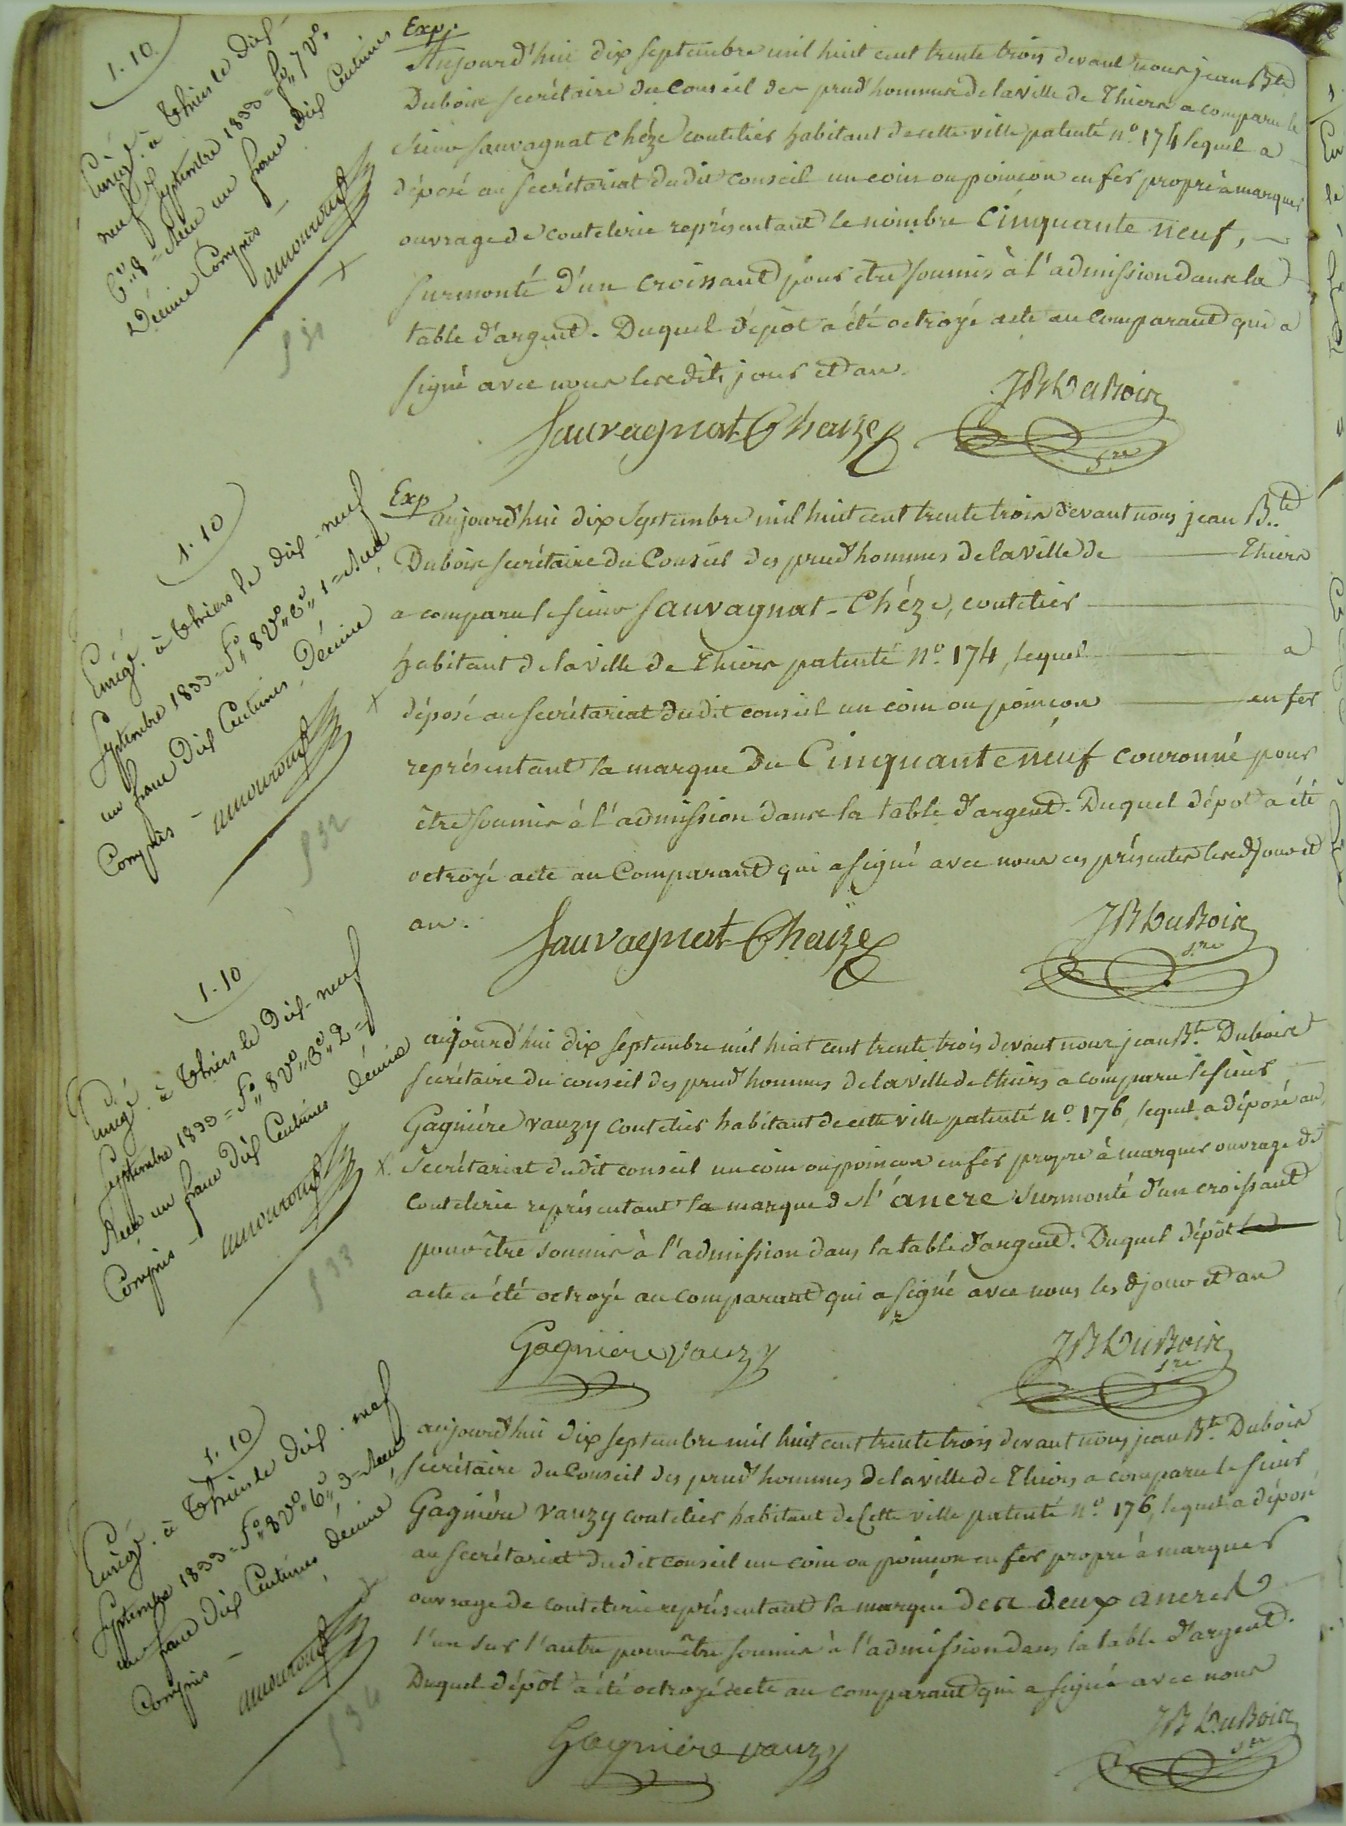 1.10
Enrégé. à Thiers le dix
neuf septembre 1833 = f° 7 v°
c. 8 = Reçu un franc dix Centimes
Décime Compris -
amouroux
531
Exp.
Aujourd'hui dix septembre mil huit cent trente trois devant nous jean Bte
Dubois secrétaire du Conseil des prud'hommes de la ville de Thiers a comparu le
sieur Sauvagnat Chéze coutelier habitant de cette ville patenté n° 174 lequel a
déposé au secrétariat dudit conseil un coin ou poinçon en fer propre à marquer
ouvrage de coutelerie représentant le nombre Cinquante neuf,
surmonté d'un croissant pour être soumis à l'admission dans la
table d'argent. Duquel dépôt a été octroyé acte au comparant qui a
signé avec nous lesdits jour et an.
Sauvagnat Chaize
JB DuBois
sre
1.10
Enrégé. à Thiers le dix-neuf
septembre 1833 = f° 8 v° c° 1 = Reçu
un franc dix Centimes, Décime
Compris -
amouroux
532
Exp
aujourd'hui dix septembre mil huit cent trente trois devant nous jean Bte
Dubois secrétaire du Conseil des prud'hommes de la ville de Thiers
a comparu le sieur Sauvagnat-Chéze, coutelier
habitant de la ville de Thiers patenté N° 174, lequel a
déposé au secrétariat dudit conseil un coin ou poinçon en fer
représentant la marque du Cinquante neuf couronné pour
être soumis à l'admission dans la table d'argent. Duquel dépôt a été
octroyé acte au Comparant qui a signé avec nous ces présentes lesd jour et
an.
Sauvagnat Chaize
JB DuBois
sre
1.10
Enregé. à Thiers le dix-neuf
septembre 1833 = f° 8 v° c° 2 =
Reçu un franc dix Centimes décime
Compris -
amouroux
533
aujourd'hui dix septembre mil huit cent trente trois devant nous jean Bte Dubois
secrétaire du conseil des prud'hommes de la ville de thiers a comparu le sieur
Gagnière vauzy coutelier habitant de cette ville patenté n° 176, lequel a déposé au
secrétariat dudit conseil un coin ou poinçon en fer propre à marquer ouvrage de
coutelerie représentant la marque de l'ancre surmonté d'un croissant
pour être soumis à l'admission dans la table d'argent. Duquel dépôt
acte a été octroyé au comparant qui a signé avec nous les d jour et an
Gagnière vauzy
JB DuBois
sre
1.10
Enrégé. à Thiers le dix-neuf
septembre 1833 = f° 8 v° c° 3 = Reçu
un franc dix Centimes, décime
Compris -
amouroux
534
aujourd'hui dix septembre mil huit cent trente trois devant nous jean Bte Dubois
secrétaire du Conseil des prud'hommes de la ville de Thiers a comparu le sieur
Gagnière vauzy coutelier habitant de Cette ville patenté n° 176, lequel a déposé
au secrétariat dudit conseil un coin ou poinçon en fer propre à marquer
ouvrage de coutelerie représentant la marque des deux ancres
l'un sur l'autre pour être soumis à l'admission dans la table d'argent.
Duquel dépôt a été octroyé acte au comparant qui a signé avec nous
Gagnière vauzy
JB DuBois
sre